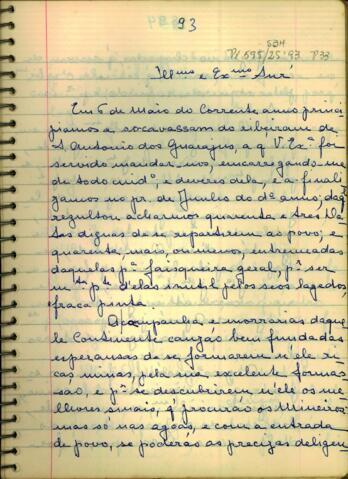 93
534
Pl 595/25-93 P33
Illmo e Exmo Snr
Em 6 de Maio do Corrente anno princi
piamos a socavassam do ribeiram de
S. Antonio dos Guarajus, a q V. Exª foi
servido mandar-nos, encarregando-me
de todo cuidº, e deveres dela, e a finali
zamos no pr. de Junho do dº anno; daq
rezultou acharmos quarenta e tres Da
tas dignas de se repartirem ao povo, e
quarenta, mais, ou menos, entremeadas
daquelas pª faisqueira geral, pª ser
mta pte d'elas inutil pelos seos lagedos,
fraca pinta.
A companha e morrarias daque
le Continente cauzão bem fundadas
esperansas de se formarem n'ele ri
cas minas, pela sua excelente forma
são, e pª se descubrirem n'ele os me
lhores sinais, q procurão os Mineiros,
mas só nas agoas, e com a entrada
de povo, se poderão as precizas deligen